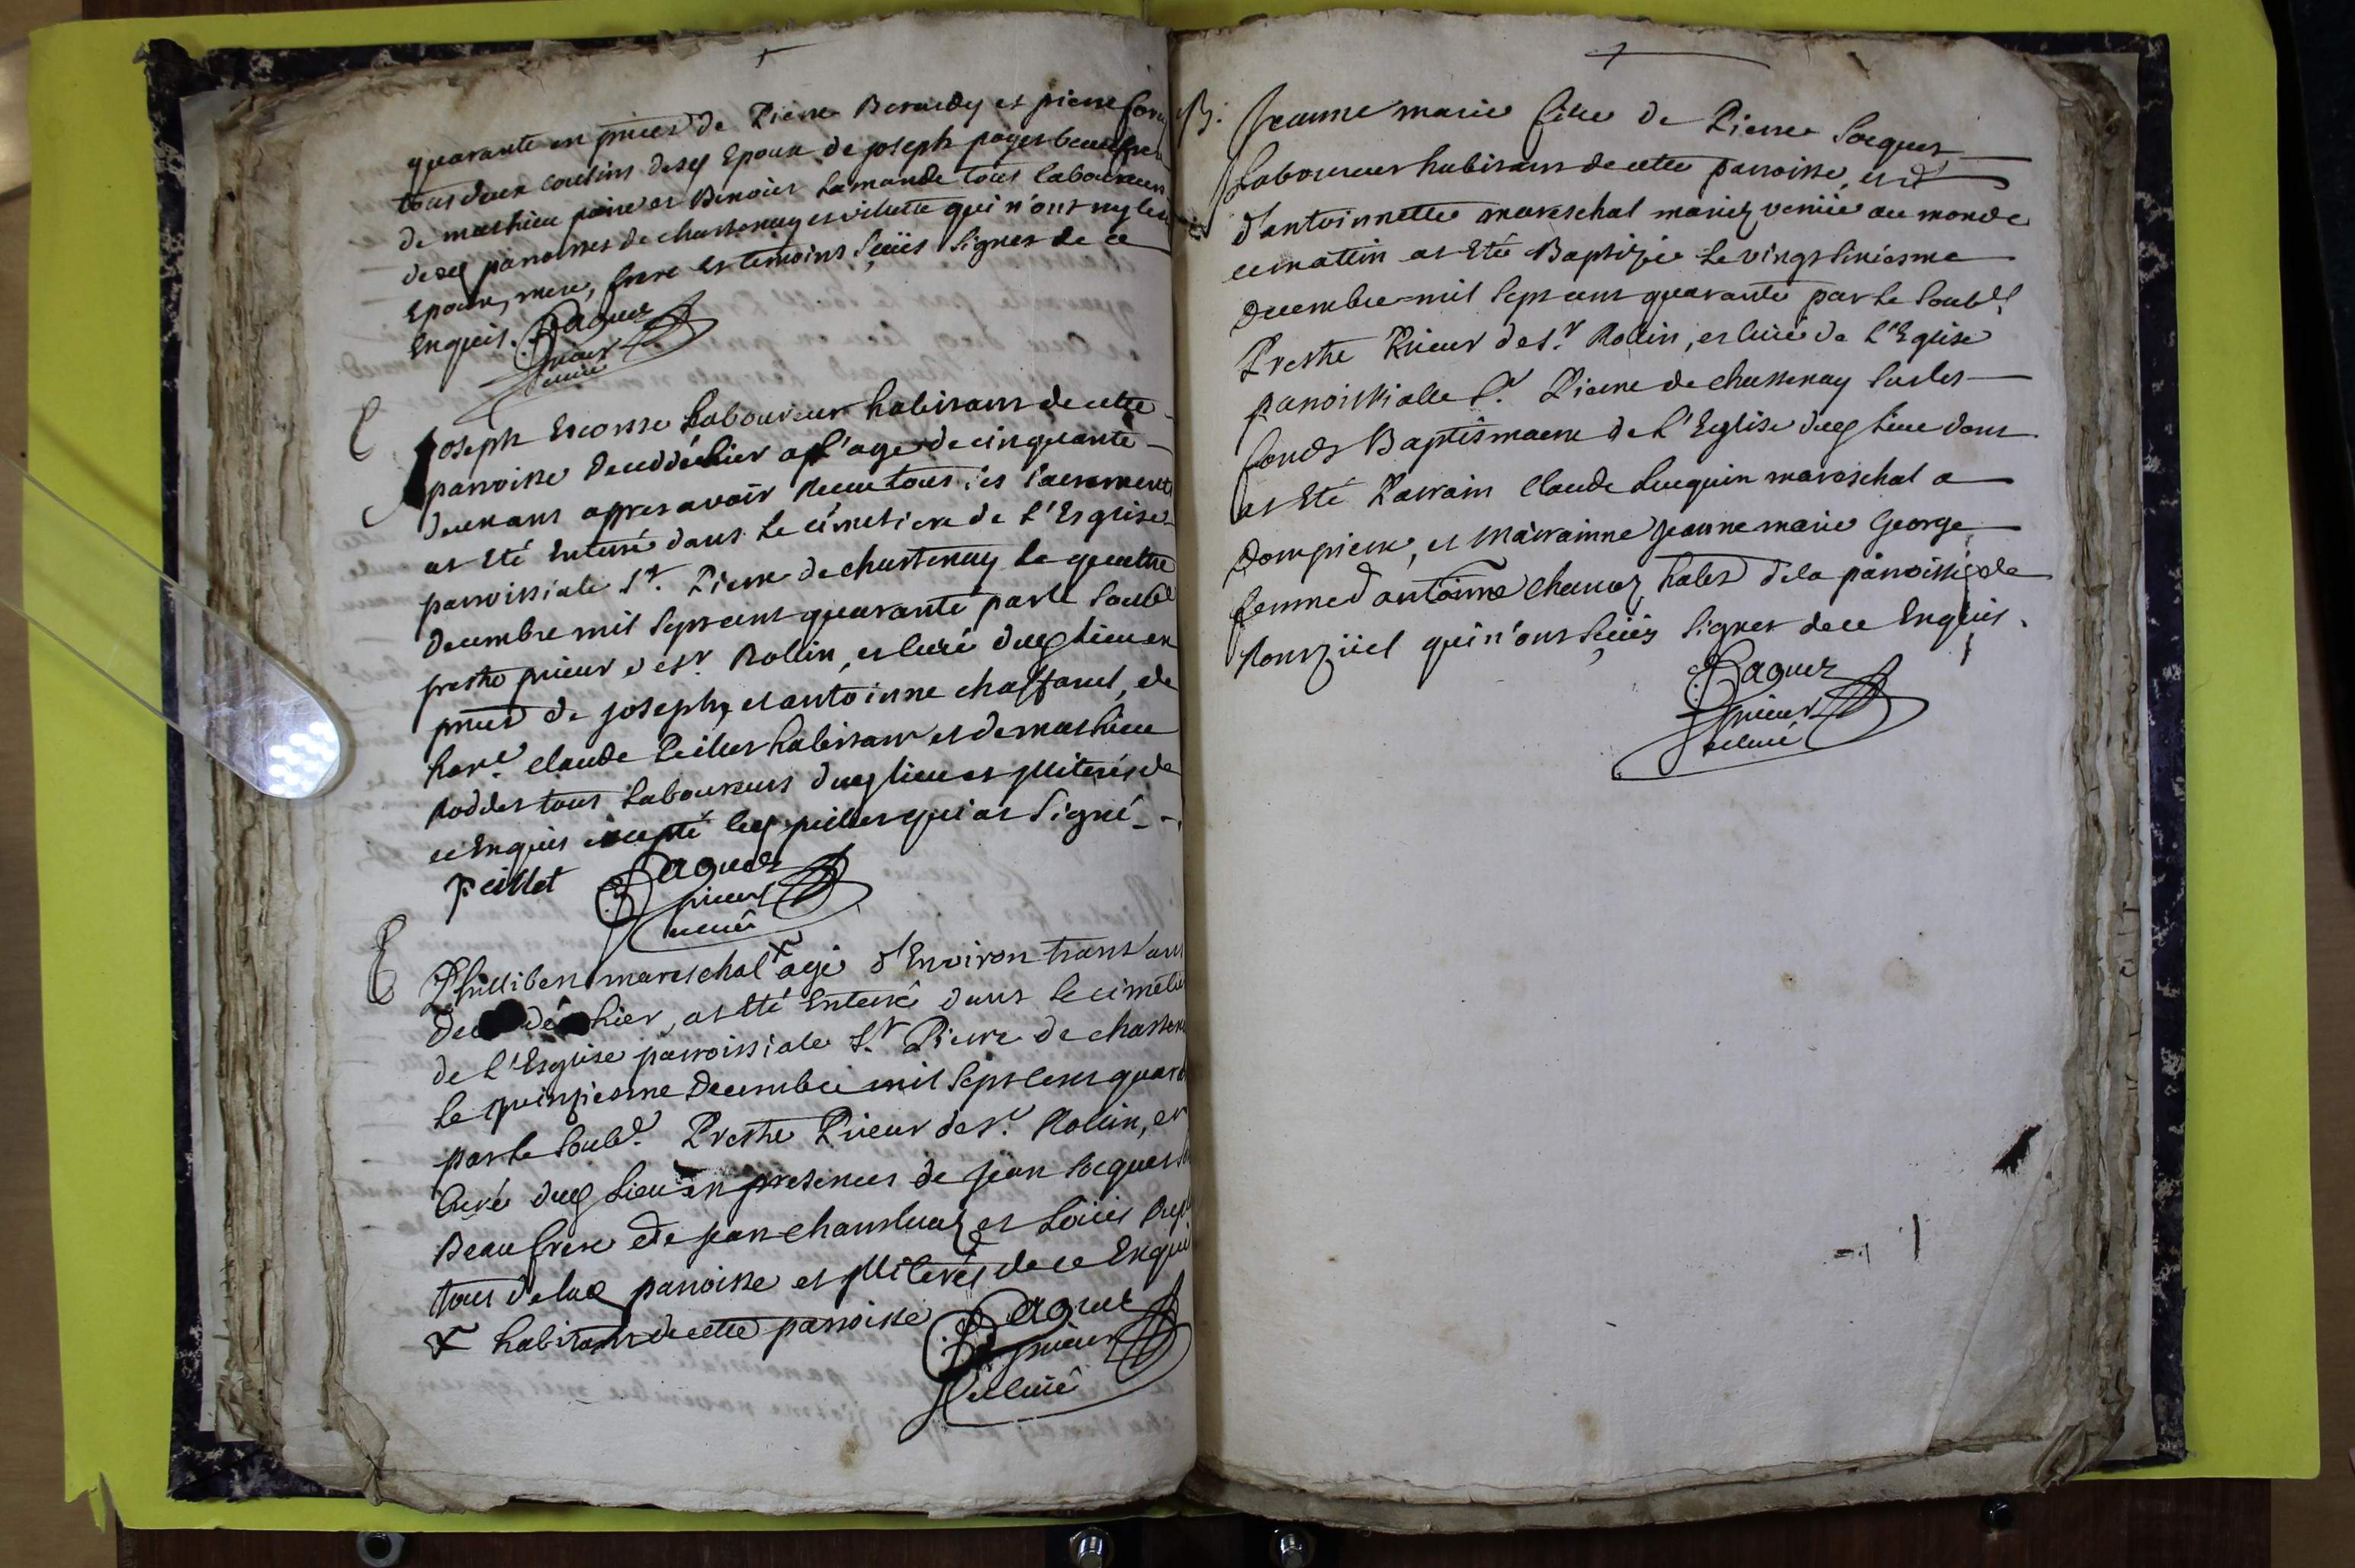 quarante en pnces de Pierre Berardy et pierre
tous deux cousins desq Epoux de joseph pages beaufrere
de mathieu poire et Benoist Lamande tous laboureurs
desq parroisses de chastenay et vilette qui n'ont
Epoux, mere, frere et temoins sçeüs signer de ce
Enquis. Paquez
prieur
et curé
E
Joseph Escosse Laboureur habitant de cette
parroisse decedé d'hier a l'age de cinquante
deux ans apres avoir receu tous les sacrements
at Eté Enterré dans Le cimetiere de l'Esglise
parroissiale St. Pierre de chastenay le quattre
decembre mil sept cent quarante par le soubé
prestre prieur de St. Rollin, et curé dudq lieu en
pnces de joseph, et antoinne chaffanel, de
hone. claude Peillet habitant et de mathieu
Roddet tous Laboureurs dudq lieu et jlliterés de
ce Enquis excepté led peillet qui at signé
peillet Paquez
prieur
et curé
E
Phillibert mareschal x agé d'Environ trante ans
decedé d'hier, at Eté Enterré dans le cimetiere
de l'Esglise parroissiale St. Pierre de
le quinziesme decembre mil sept cent
par le soubé. Prestre Prieur de St. Rollin, et
Curé dudq Lieu en presences de jean Socquet
Beaufrere de jean et Loüis
tous de lad parroisse et jlliterés de ce Enquis
x habitant de cette parroisse Paquez
prieur
et curé
B. Jeanne marie fille de Pierre Socquet
Laboureur habitant de cette parroisse, et
d'antoinnette mareschal mariez venüe au monde
ce mattin at Eté Baptizée Le vingt
decembre mil sept cent quarante par Le soubé
Prestre Prieur de St. Rollin, et curé de L'Eglise
parroissialle St. Pierre de chastenay sur les
fonds Baptismaux de L'Eglise dudq Lieu dont
at Eté Parrain Claude Luquin mareschal a
Dompierre, et Marrainne jeanne marie George
femme d'antoinne habts de la parroisse de
qui n'ont sçeüs signer de ce Enquis.
Paquez
prieur
et curé